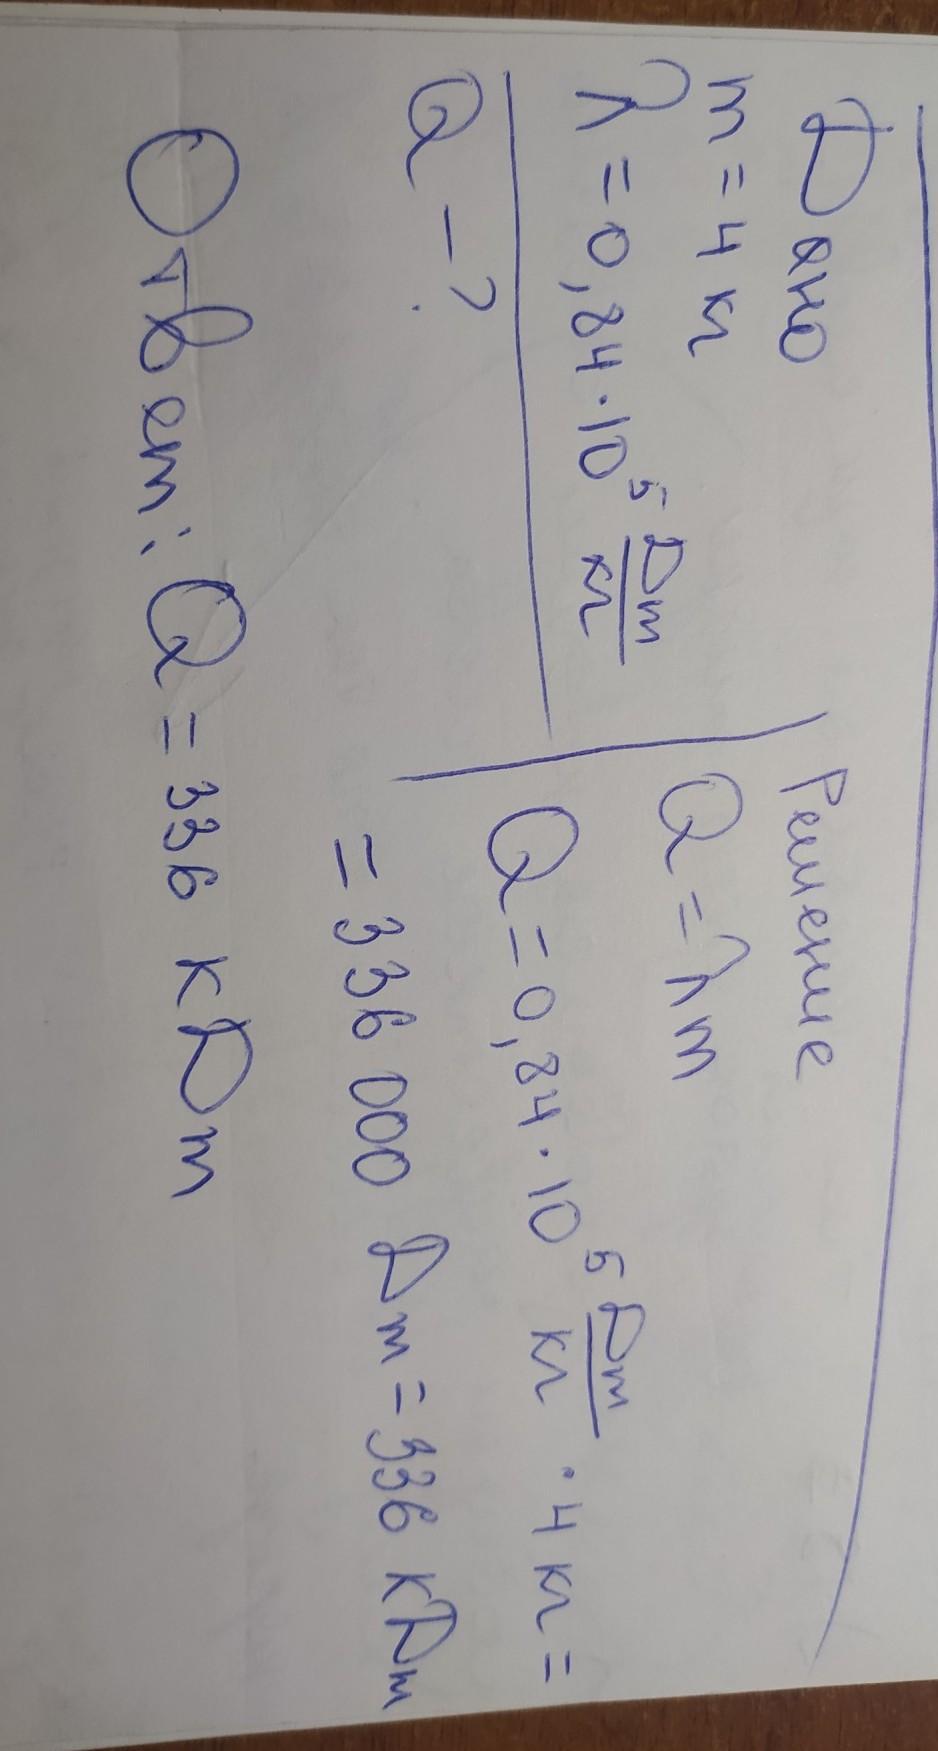 Дано
m = 4 кг
λ = 0,84 · 10⁵ Дж/кг
Q – ?
Решение
Q = λm
Q = 0,84 · 10⁵ Дж/кг · 4 кг =
= 336 000 Дж = 336 кДж
Ответ: Q = 336 кДж